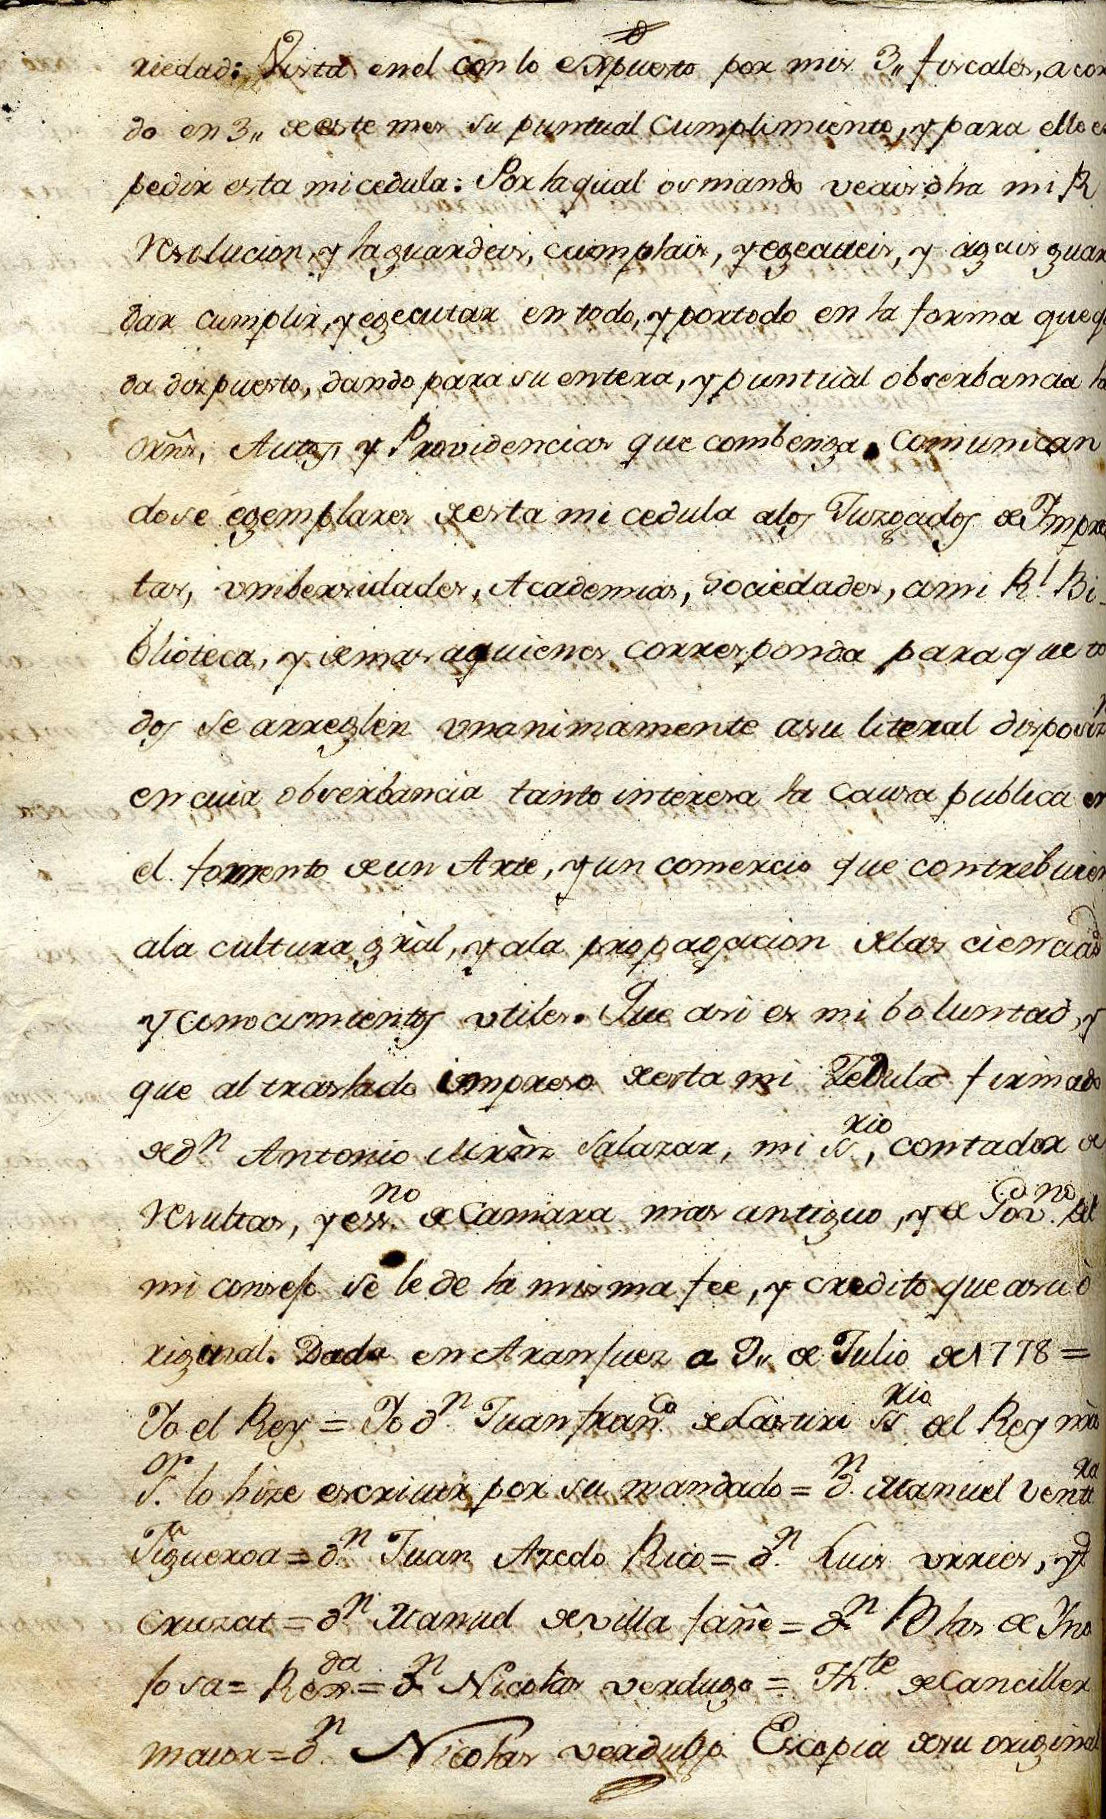 riedad: Vista en el con lo expuesto por mis 3,, fiscales, acor
do en 3,, de este mes su puntual cumplimiento, y para ello es
pedir esta mi cedula: Por la qual os mando veais dha mi R
resolucion, y la guardeis, cumplais, y egecuteis, y agais guar
dar cumplir, y egecutar en todo, y por todo en la forma que q
da dispuesto, dando para su entera, y puntual obserbancia la
orñs, Autos, y Providencias que combenga. comunican
dose egemplares de esta mi cedula alos Juzgados de Impre
tas, vnibersidades, Academias, Sociedades, a mi Rl. Bi-
blioteca, y demas aquienes corresponda para que to
dos se arreglen vnanimamente asu literal disposiz
en cuia obserbancia tanto interesa la causa publica en
el fomento de un Arte, y un comercio que contribuien
ala cultura gral, y ala propagacion delas ciencias
y conocimientos vtiles. Que asi es mi boluntad, y
que al traslado impreso de esta mi Zedula firmado
de dn Antonio Mrñz Salazar, mi Srio, contador de
resultas, y essno. de Camara mas antiguo, y de Govno. del
mi consejo se le de la misma fee, y credito que asu o
riginal. Dada en Aranjuez a 9,, de Julio de 1778 =
Yo el Rey = Yo dn. Juan franco. de Lastiri Srio del Rey nro
Sor. lo hize escriuir por su mandado = dn. Manuel Ventra
Figueroa = dn. Juan Azedo Rico = dn. Luis vrries, y
Cruzat = dn Manuel de villa fañe = dn Blas de Yno
josa = Regda. = dn Nicolas verdugo = Thte. de Canciller
maior = dn. Nicolas verdugo Es copia de su original